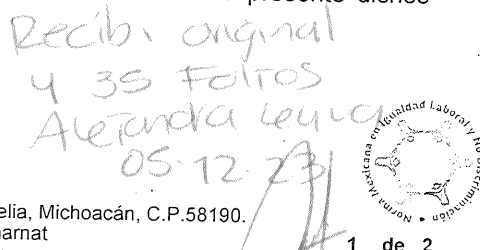 presente dichos
Recibi original
y 35 Foltos
Alejandra Leyva
05.12.23
Norma Mexicana en Igualdad Laboral y No Discriminación
elia, Michoacán, C.P.58190.
narnat
1 de 2